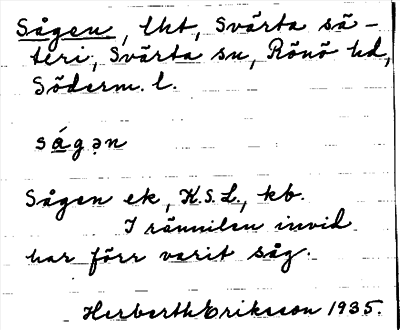 Sågen, lht, Svärta sä-
teri, Svärta sn, Rönö hd,
Söderm. l.
ság̣ən
Sågen ek, H.S.L., kb.
I rännilen invid
har förr varit såg.
Herberth Eriksson 1935.